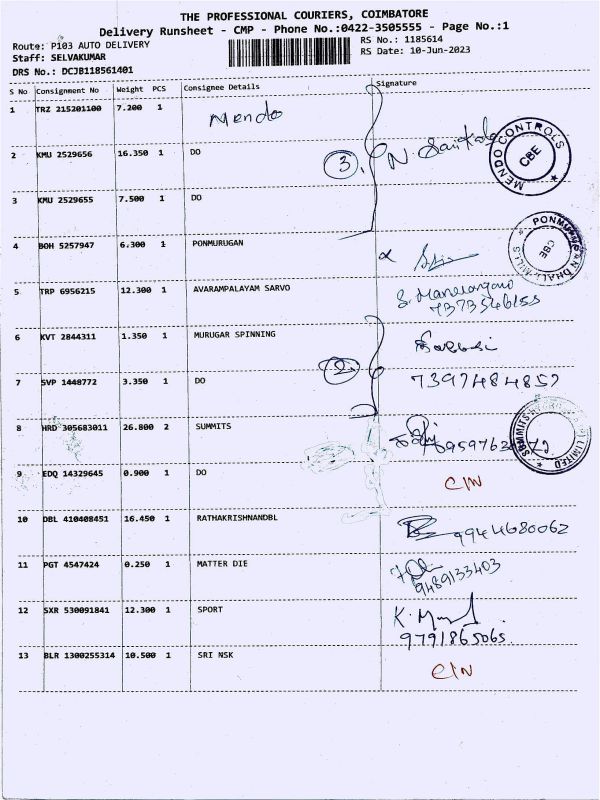 THE PROFESSIONAL COURIERS, COIMBATORE
Delivery Runsheet - CMP - Phone No.:0422-3505555 - Page No.:1
Route: P103 AUTO DELIVERY
RS No.: 1185614
Staff: SELVAKUMAR
RS Date: 10-Jun-2023
DRS No.: DCJB118561401
S No Consignment No Weight PCS Consignee Details Signature
1 TRZ 215201100 7.200 1 Mendo
2 KMU 2529656 16.350 1 DO
3
MENDO CONTROLS CBE
3 KMU 2529655 7.500 1 DO
4 BOH 5257947 6.300 1 PONMURUGAN
CBE
5 TRP 6956215 12.300 1 AVARAMPALAYAM SARVO
7373546155
6 KVT 2844311 1.350 1 MURUGAR SPINNING
2
7 SVP 1448772 3.350 1 DO 7397484857
8 HRD 305683011 26.800 2 SUMMITS
9 EDQ 14329645 0.900 1 DO CIN
10 DBL 410408451 16.450 1 RATHAKRISHNANDBL 9944680062
11 PGT 4547424 0.250 1 MATTER DIE
9489133403
12 SXR 530091841 12.300 1 SPORT
9791865065.
13 BLR 1300255314 10.500 1 SRI NSK CIN